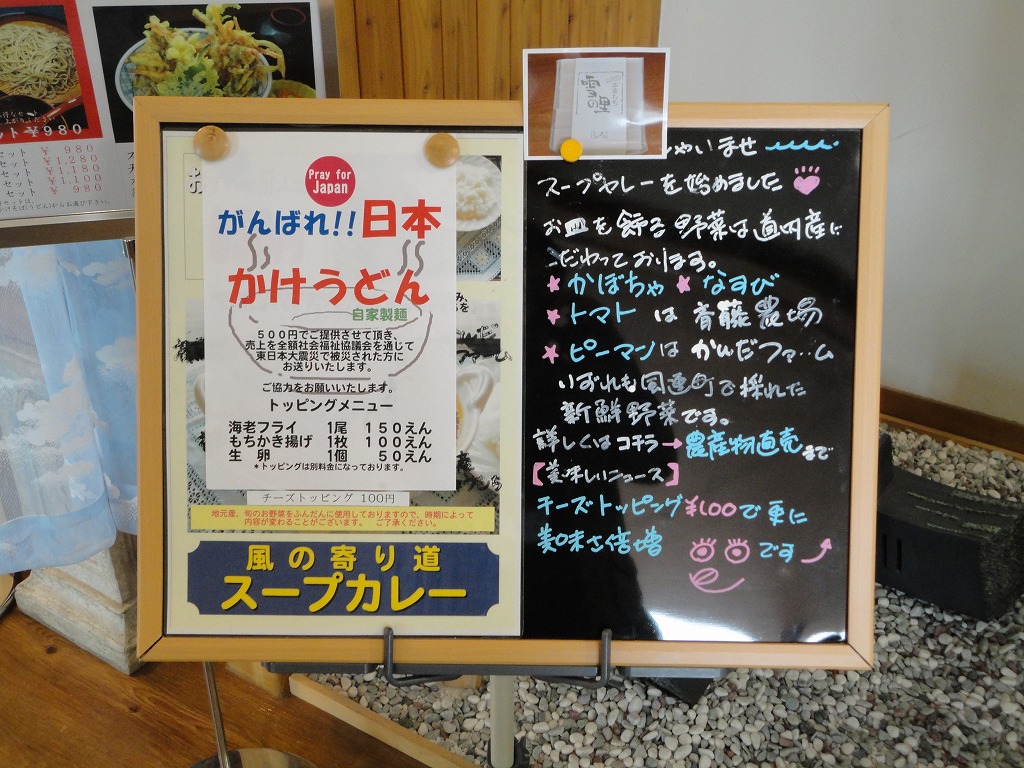 ット ¥980
セット ¥ 980
セット ¥1,280
セット ¥1,180
セット ¥1,100
セット ¥ 980
Pray for
Japan
がんばれ!!日本
かけうどん
自家製麺
500円でご提供させて頂き、
売上を全額社会福祉協議会を通じて
東日本大震災で被災された方に
お送りいたします。
ご協力をお願いいたします。
トッピングメニュー
海老フライ 1尾 150えん
もちかき揚げ 1枚 100えん
生 卵 1個 50えん
*トッピングは別料金になっております。
チーズトッピング 100円
地元産、旬のお野菜をふんだんに使用しておりますので、時期によって
内容が変わることがございます。 ご了承ください。
風の寄り道
スープカレー
ゃいませ
スープカレーを始めました
お皿を飾る野菜は道内産に
こだわっております。
★かぼちゃ ★なすび
★トマト は 斉藤農場
★ピーマンは かんだファーム
いずれも風連町で採れた
新鮮野菜です。
詳しくはコチラ→農産物直売まで
【美味しいニュース】
チーズトッピング¥100で更に
美味さ倍増 です